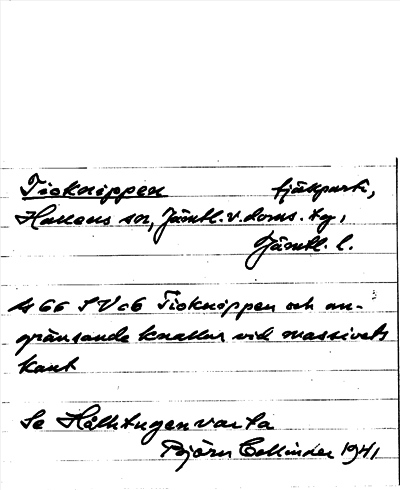 Tioknippen fjällparti,
Hallens sn, Jämtl. v. doms. tg,
Jämtl. l.
66 SV c6 Tioknippen och an-
gränsande knallar vid massivets
kant
Se Hållhtugenvarta
Björn Collinder 1941